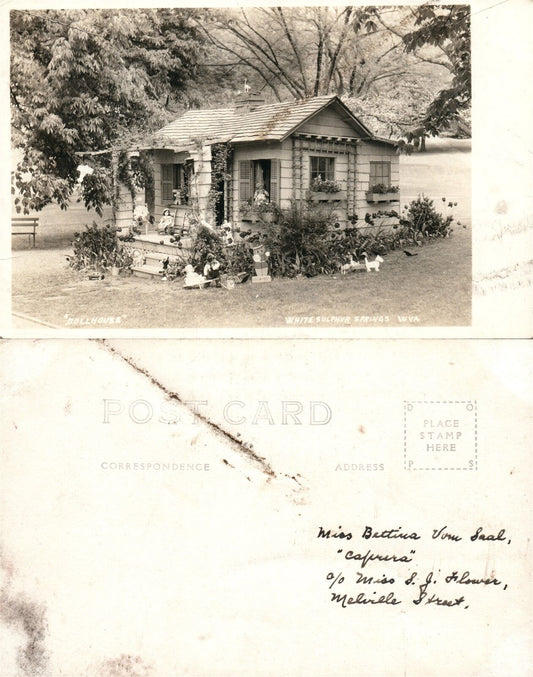 "DOLLHOUSE" WHITE SULPHUR SPRINGS W.VA.
POST CARD
CORRESPONDENCE
ADDRESS
D O
PLACE
STAMP
HERE
P S
Miss Bettina Vom Saal,
"Caprera"
c/o Miss S. J. Flower,
Melville Street.